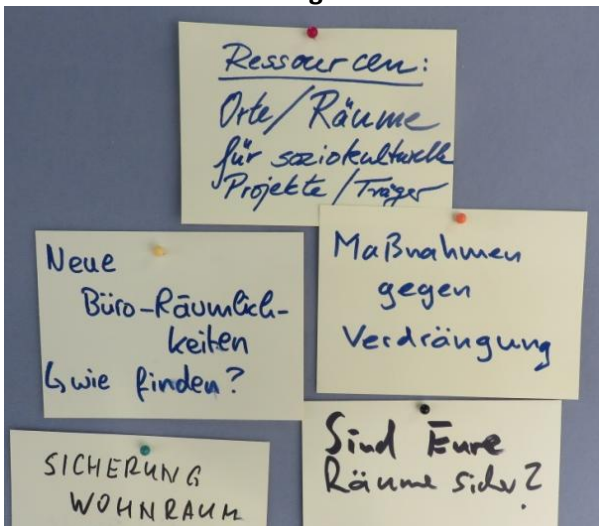 Ressourcen:
Orte/Räume
für soziokulturelle
Projekte/Träger
Neue
Büro-Räumlich-
keiten
↳ wie finden?
Maßnahmen
gegen
Verdrängung
SICHERUNG
WOHNRAUM
Sind Eure
Räume sicher?